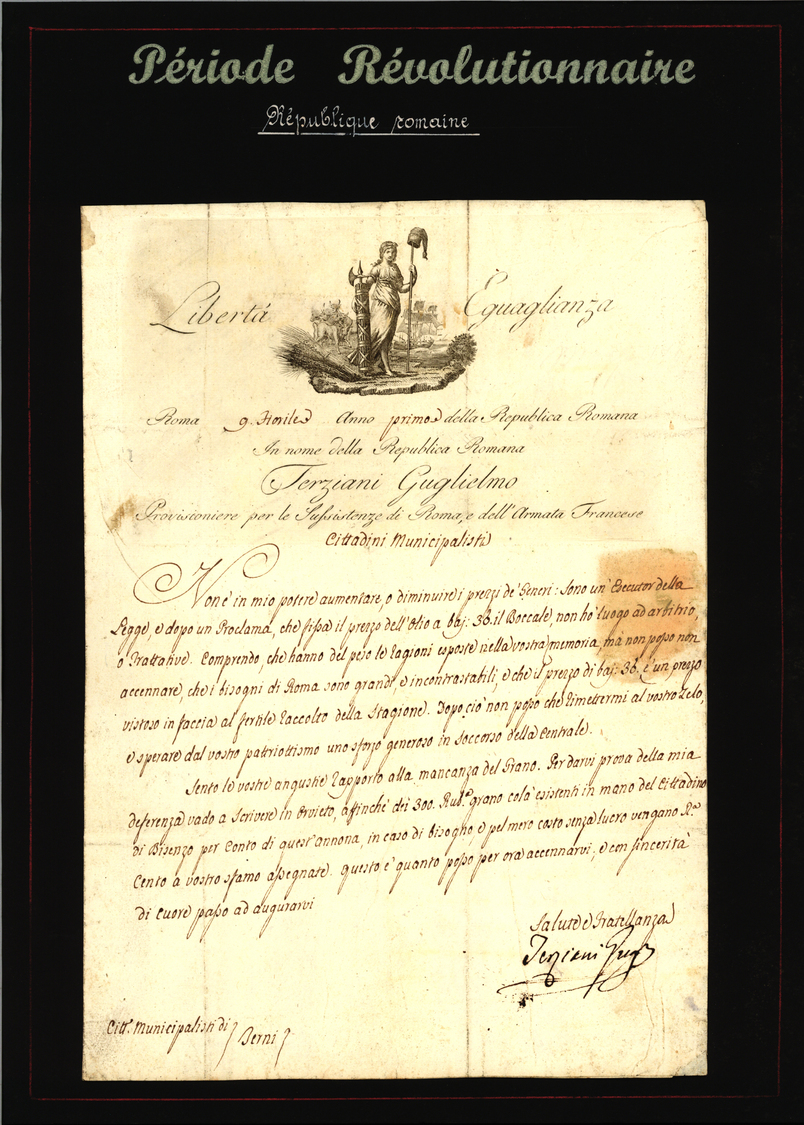 Période Révolutionnaire
République romaine
Libertá Eguaglianza
Roma 9. Fiorile Anno primo della Republica Romana
In nome della Republica Romana
Terziani Guglielmo
Provisioniere per le Sussistenze di Roma, e dell'Armata Francese
Cittadini Municipalisti
Non è in mio potere aumentare, o diminuire i prezzi de' Generi: Sono un' Esecutor della
Legge, e dopo un Proclama, che fissa il prezzo dell'Olio a baj: 36. il Boccale, non ho luogo ad arbitrio,
o Trattative. Comprendo, che hanno del peso le ragioni esposte nella vostra memoria, ma non posso non
accennare, che i bisogni di Roma sono grandi, e incontrastabili, e che il prezzo di baj: 36. è un prezzo
vistoso in faccia al fertile raccolto della Stagione. Dopo ciò non posso che rimettermi al vostro Zelo,
e sperare dal vostro patriottismo uno sforzo generoso in soccorso della Centrale.
Sento le vostre angustie rapporto alla mancanza del Grano. Per darvi prova della mia
deferenza vado a scrivere in Orvieto, affinchè dei 300. Rub. grano colà esistenti in mano del Cittadino
di Bisenzo per conto di quest'annona, in caso di bisogno, e pel mero costo senza lucro vengano R.
Cento a vostro sfamo assegnate. Questo è quanto posso per ora accennarvi, e con sincerità
di Cuore passo ad augurarvi
Salute e Fratellanza
Terziani
Citt. Municipalisti di